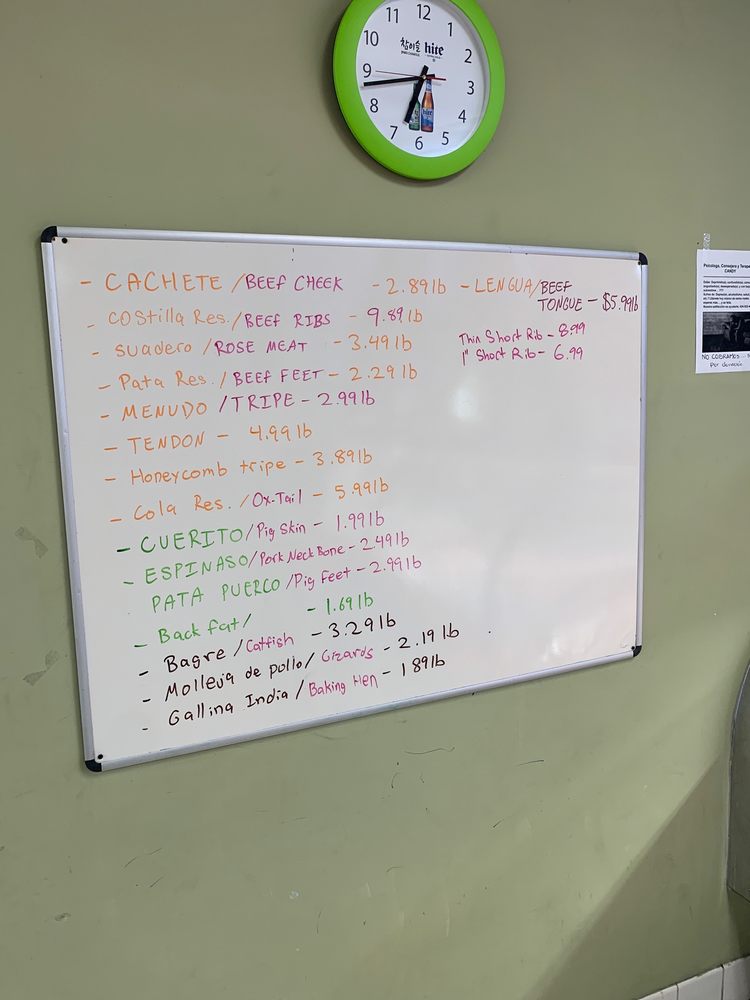 11 12 1
10 2
9 3
8 4
7 6 5
참이슬 hite
hite
- CACHETE / BEEF CHEEK - 2.89lb
- COStilla Res. / BEEF RIBS - 9.89lb
- suadero / ROSE MEAT - 3.49lb
- Pata Res. / BEEF FEET - 2.29lb
- MENUDO / TRIPE - 2.99lb
- TENDON - 4.99lb
- Honeycomb tripe - 3.89lb
- Cola Res. / Ox-Tail - 5.99lb
- CUERITO / Pig Skin - 1.99lb
- ESPINASO / Pork Neck Bone - 2.49lb
PATA PUERCO / Pig Feet - 2.99lb
- Back fat / - 1.69lb
- Bagre / Catfish - 3.29lb
- Molleja de pollo / Gizards - 2.19lb
- Gallina India / Baking Hen - 1 89lb
- LENGUA / BEEF
TONGUE - $5.99lb
Thin Short Rib - 8.99
1" Short Rib - 6.99
Psicóloga, Consejera y Terap
CANDY
NO COBRAMOS
Por